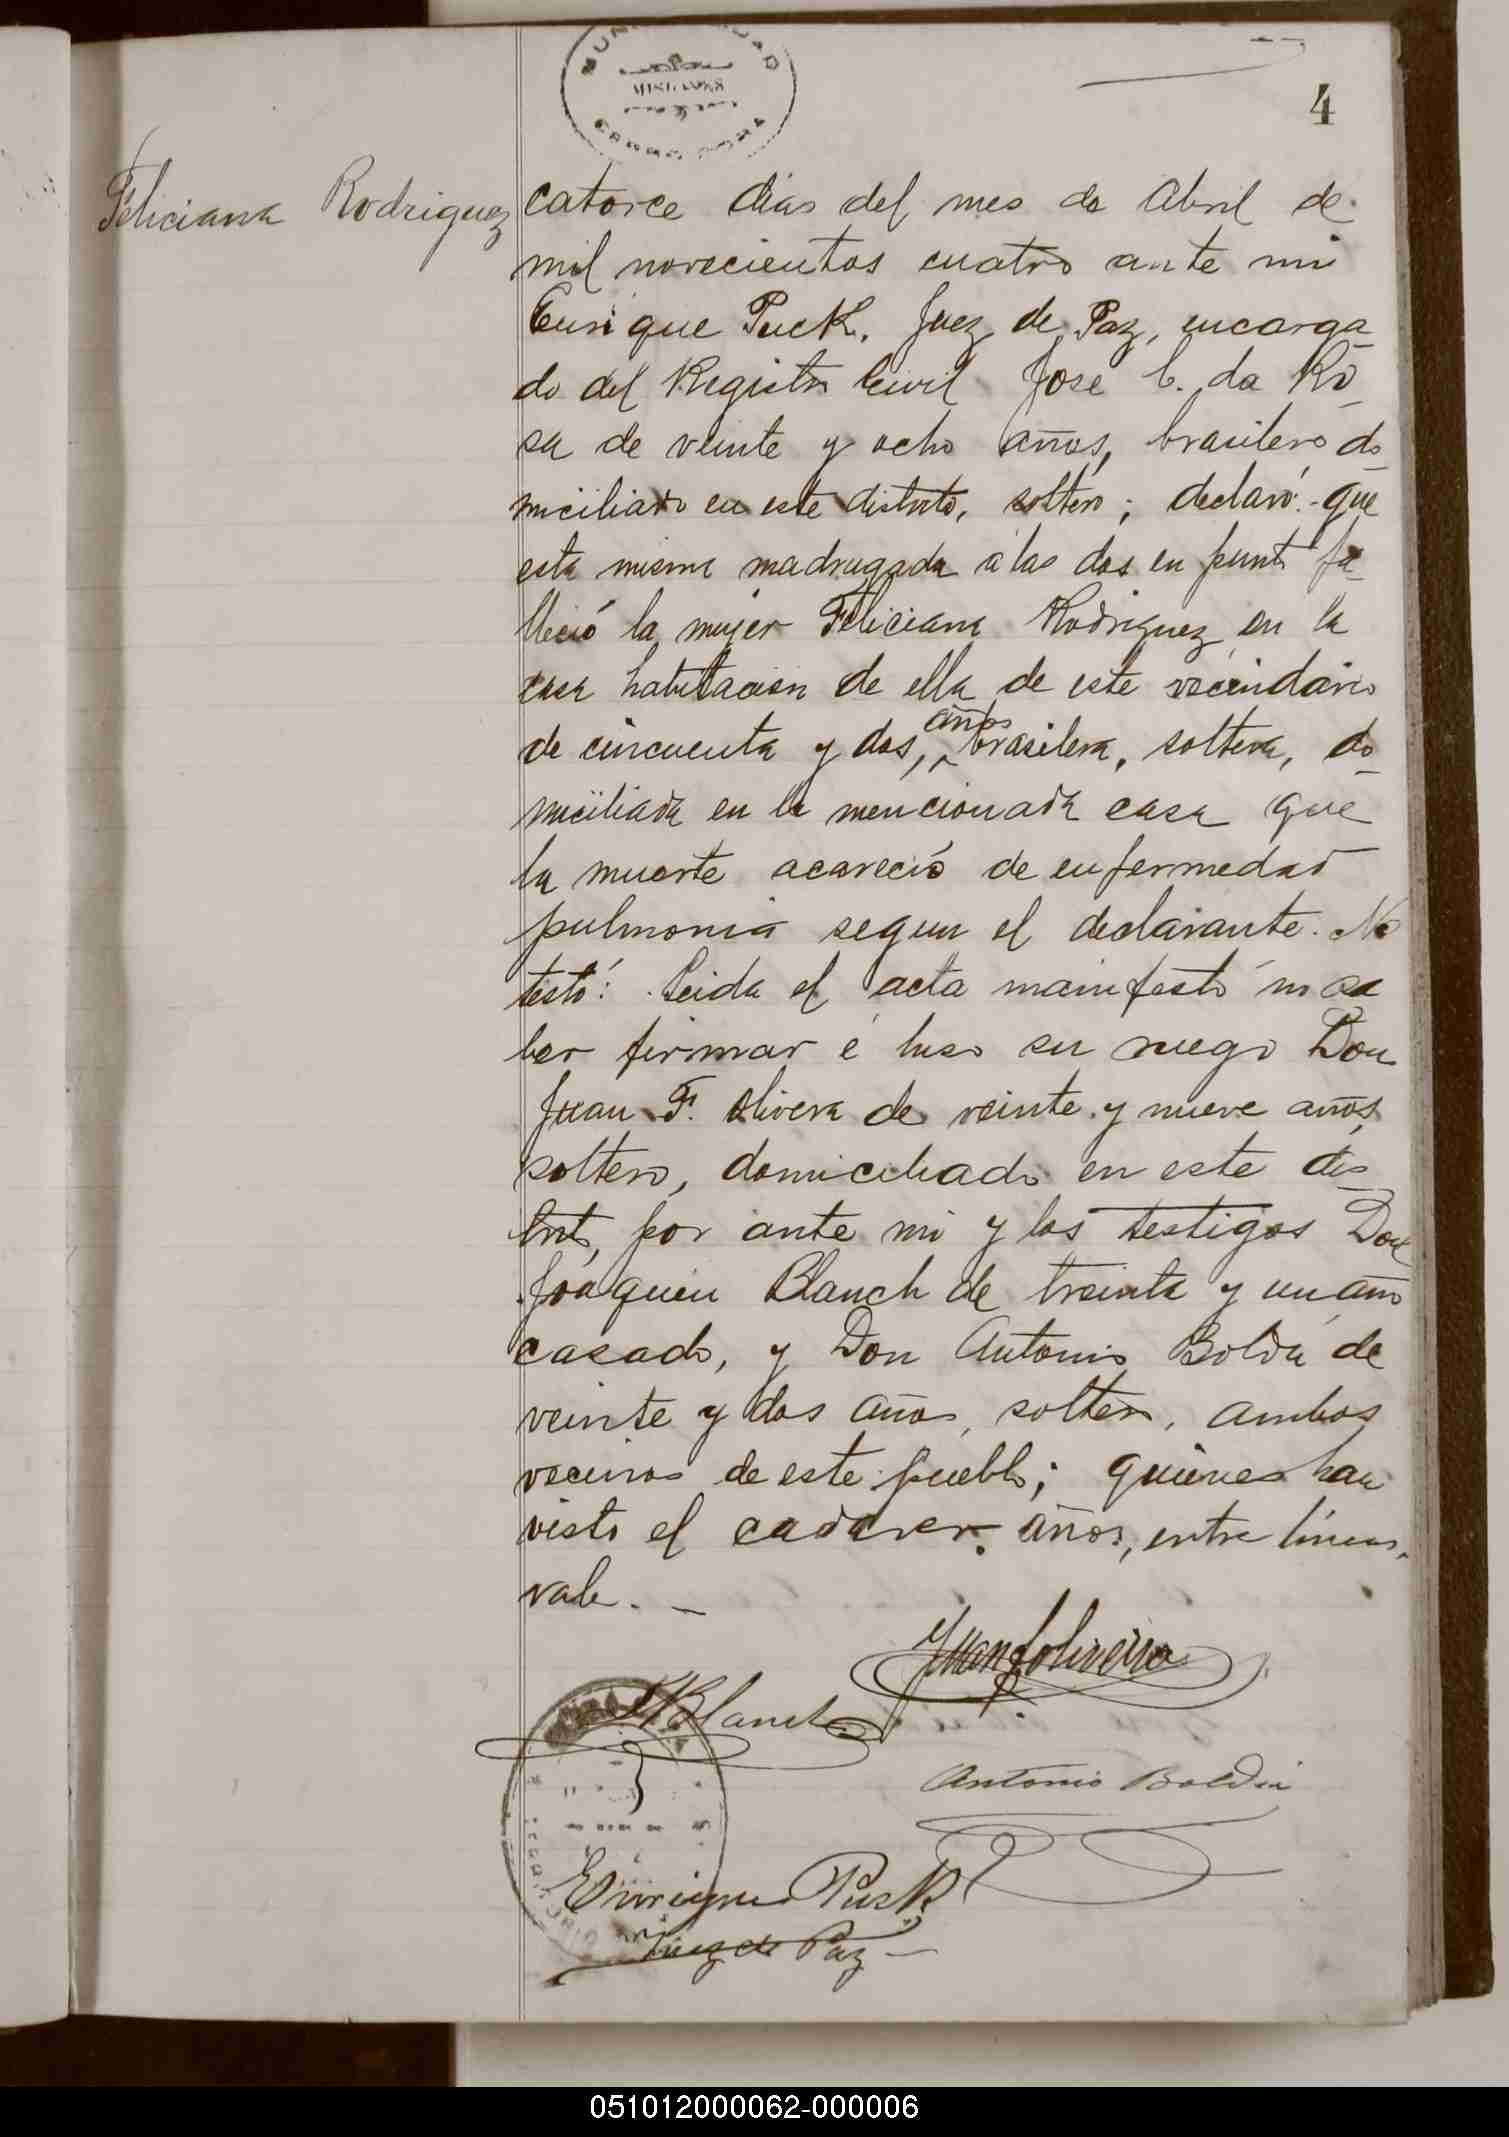 4
Feliciana Rodriguez
catorce dias del mes de Abril de
mil novecientos cuatro ante mi
Enrique Puck, Juez de Paz, encarga
do del Registro Civil Jose C. da Ro
sa de veinte y ocho años, brasilero do
miciliado en este distrito, soltero; declaró: que
esta misma madrugada á las dos en punto fa
lleció la mujer Feliciana Rodriguez en la
casa habitacion de ella de este vecindario
de cincuenta y dos, años brasilera, soltera, do
miciliada en la mencionada casa que
la muerte acareció de enfermedad
pulmonia segun el declarante. No
testó: Leida el acta manifestó no sa
ber firmar é hizo su ruego Don
Juan F. Olivera de veinte y nueve años,
soltero, domiciliado en este dis
trito, por ante mi y los testigos Don
Joaquin Blanch de treinta y un año
casado, y Don Antonio Boldú de
veinte y dos años, soltero, ambos
vecinos de este pueblo; quienes han
visto el cadaver. años, entre lineas,
vale.
Juan F Oliveira
J Blanch
Antonio Boldú
Enrique Puck
Juez de Paz
051012000062-000006